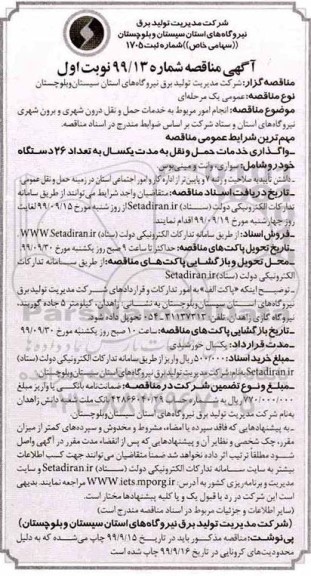 شرکت مدیریت تولید برق
نیروگاه‌های استان سیستان و بلوچستان
((سهامی خاص)) شماره ثبت ۱۷۰۵
آگهی مناقصه شماره ۹۹/۱۳ نوبت اول
مناقصه گزار: شرکت مدیریت تولید برق نیروگاه‌های استان سیستان وبلوچستان
نوع مناقصه: عمومی یک مرحله‌ای
موضوع مناقصه: انجام امور مربوط به خدمات حمل و نقل درون شهری و برون شهری
نیروگاه‌های استان و ستاد شرکت بر اساس ضوابط مندرج در اسناد مناقصه.
مهم ترین شرایط عمومی مناقصه
ـ واگذاری خدمات حمل و نقل به مدت یکسال به تعداد ۲۶ دستگاه
خودرو شامل: سواری، وانت و مینی بوس
ـ تاریخ دریافت اسناد مناقصه: متقاضیان واجد شرایط می‌توانند از طریق سامانه
تدارکات الکترونیکی دولت (ستاد) Setadiran.ir از روز شنبه مورخ ۹۹/۰۹/۱۵ لغایت
روز چهارشنبه مورخ ۹۹/۰۹/۱۹ اقدام نمایند.
ـ فروش اسناد: از طریق سامانه تدارکات الکترونیکی دولت (ستاد) WWW.Setadiran.ir
ـ تاریخ تحویل پاکت‌های مناقصه: حداکثر تا ساعت ۹ صبح روز یکشنبه مورخ ۹۹/۰۹/۳۰
ـ محل تحویل و بازگشایی پاکت‌های مناقصه: از طریق سامانه تدارکات
الکترونیکی دولت (ستاد) Setadiran.ir
ـ توضیح اینکه «پاکت الف» به امور تدارکات و قراردادهای شرکت مدیریت تولید برق
نیروگاه‌های استان سیستان وبلوچستان به نشانی: زاهدان، کیلومتر ۵ جاده گوربند،
نیروگاه گازی زاهدان، تلفن: ۳۱۱۳۷۳۱۲-۰۵۴ تحویل داده شود.
ـ تاریخ بازگشایی پاکت‌های مناقصه: ساعت ۱۰ صبح روز یکشنبه مورخ ۹۹/۰۹/۳۰
ـ مدت قرارداد: یکسال خورشیدی
ـ مبلغ خرید اسناد: ۵۰۰/۰۰۰ ریال واریز از طریق سامانه تدارکات الکترونیکی دولت (ستاد)
Setadiran.ir بنام شرکت مدیریت تولید برق نیروگاه‌های استان سیستان وبلوچستان
ـ مبلغ و نوع تضمین شرکت در مناقصه: ضمانت‌نامه بانکی یا واریز مبلغ
به‌نام شرکت مدیریت تولید برق نیروگاه‌های استان سیستان وبلوچستان.
ـ به پیشنهادهایی که فاقد سپرده یا امضاء، مشروط و مخدوش و سپرده‌های کمتر از میزان
مقرر، چک شخصی و نظایر آن و پیشنهادهایی که پس از انقضاء مدت مقرر در آگهی واصل
شود مطلقا ترتیب اثر داده نخواهد شد ضمنا متقاضیان می‌توانند جهت کسب اطلاعات
بیشتر به سایت سامانه تدارکات الکترونیکی دولت (ستاد) Setadiran.ir و سایت
مدیریت و برنامه‌ریزی کشور به آدرس: WWW.iets.mporg.ir مراجعه نمایند. بدیهی
است این شرکت در رد یا قبول یک و یا کلیه پیشنهادها مختار است.
(سایر اطلاعات و جزئیات مربوط در اسناد مناقصه مندرج است)
(شرکت مدیریت تولید برق نیروگاه‌های استان سیستان و بلوچستان)
پی‌نوشت: مناقصه مذکور باید در تاریخ ۹۹/۹/۱۵ چاپ می‌شده که به دلیل
محدودیت‌های کرونایی در تاریخ ۹۹/۹/۱۶ چاپ شده است